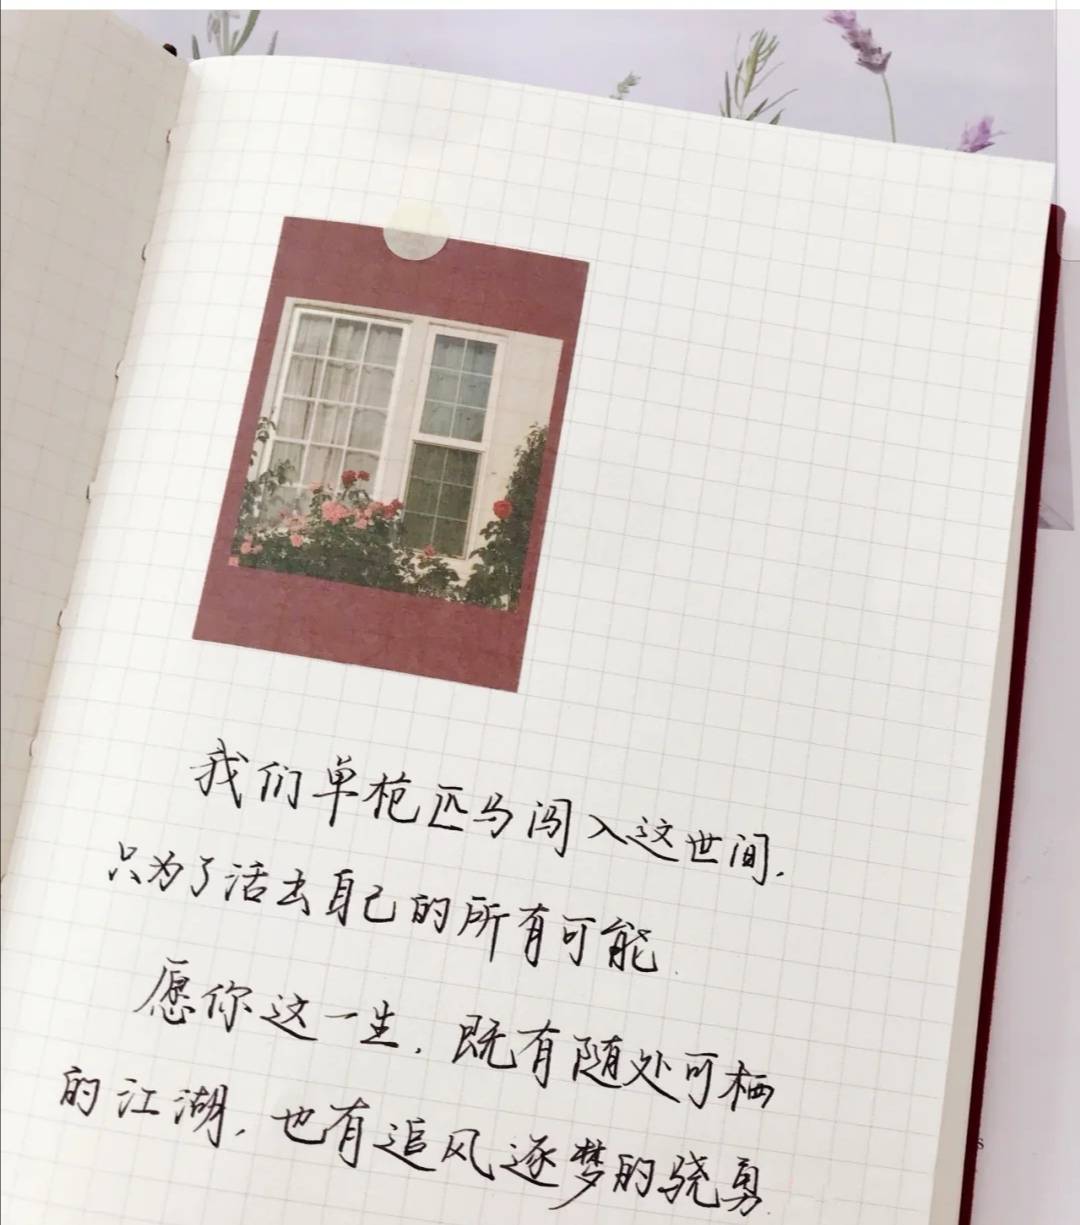 我们单枪匹马闯入这世间.
只为了活去自己的所有可能.
愿你这一生.既有随处可栖
的江湖.也有追风逐梦的骁勇.